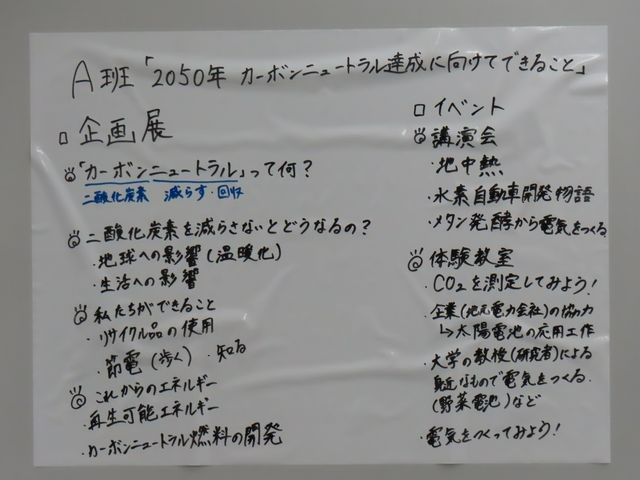 A班「2050年 カーボンニュートラル達成に向けてできること」
□ 企画展
◎「カーボンニュートラル」って何？
二酸化炭素 減らす・回収
◎ 二酸化炭素を減らさないとどうなるの？
・地球への影響(温暖化)
・生活への影響
◎ 私たちができること
・リサイクル品の使用
・節電(歩く) ・知る
◎ これからのエネルギー
・再生可能エネルギー
・カーボンニュートラル燃料の開発
□ イベント
◎ 講演会
・地中熱
・水素自動車開発物語
・メタン発酵から電気をつくる
◎ 体験教室
・CO2を測定してみよう!
・企業(地元電力会社)の協力
↳太陽電池の応用工作
・大学の教授(研究者)による
身近なもので電気をつくる.
(野菜電池)など
・電気をつくってみよう!